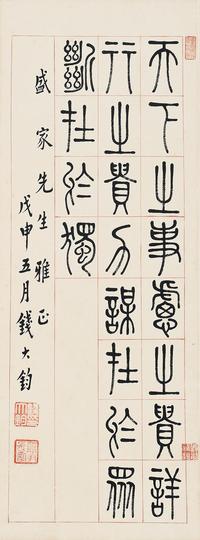 天下之事慮之貴詳
行之貴力謀在於眾
斷在於獨
盛家先生雅正
戊申五月錢大鈞